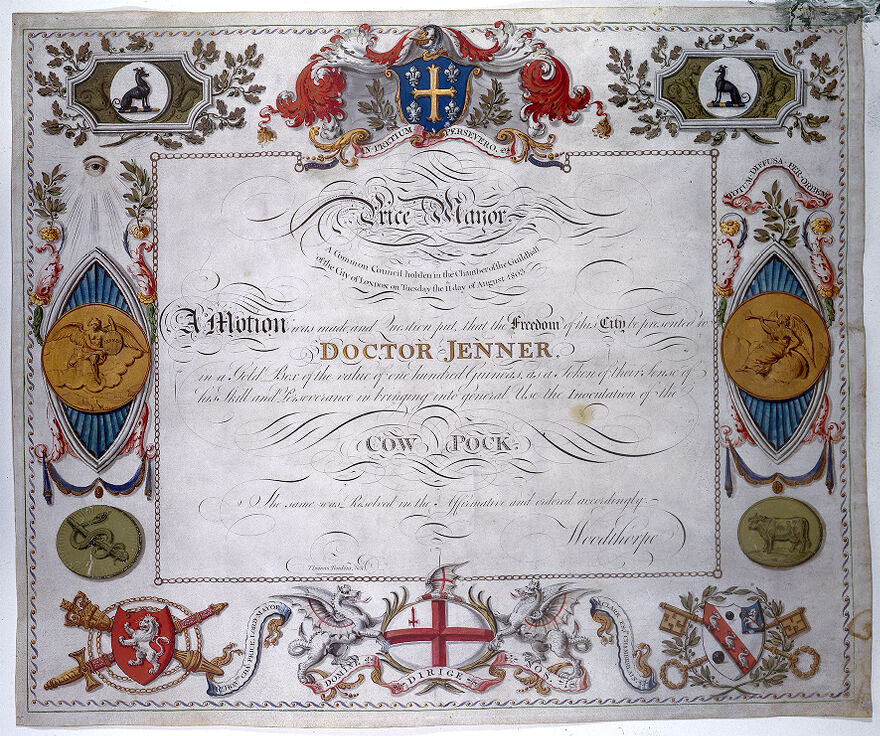 IN PRETIUM PERSEVERO.
TOTUM DIFFUSA PER ORBEM
Price Mayor
A Common Council holden in the Chamber of the Guildhall
of the City of London on Tuesday the 11 day of August 1803
A Motion was made and Question put, that the Freedom of this City be presented to
DOCTOR JENNER.
in a Gold Box of the value of one hundred Guineas, as a Token of their Sense of
his Skill and Perseverance in bringing into general Use the Inoculation of the
COW POCK.
The same was Resolved in the Affirmative and ordered accordingly.
Woodthorpe
Thomas Tomkins, Script.
PRICE LORD MAYOR
DOMINE DIRIGE NOS.
CLARK ESQr. CHAMBERLAIN